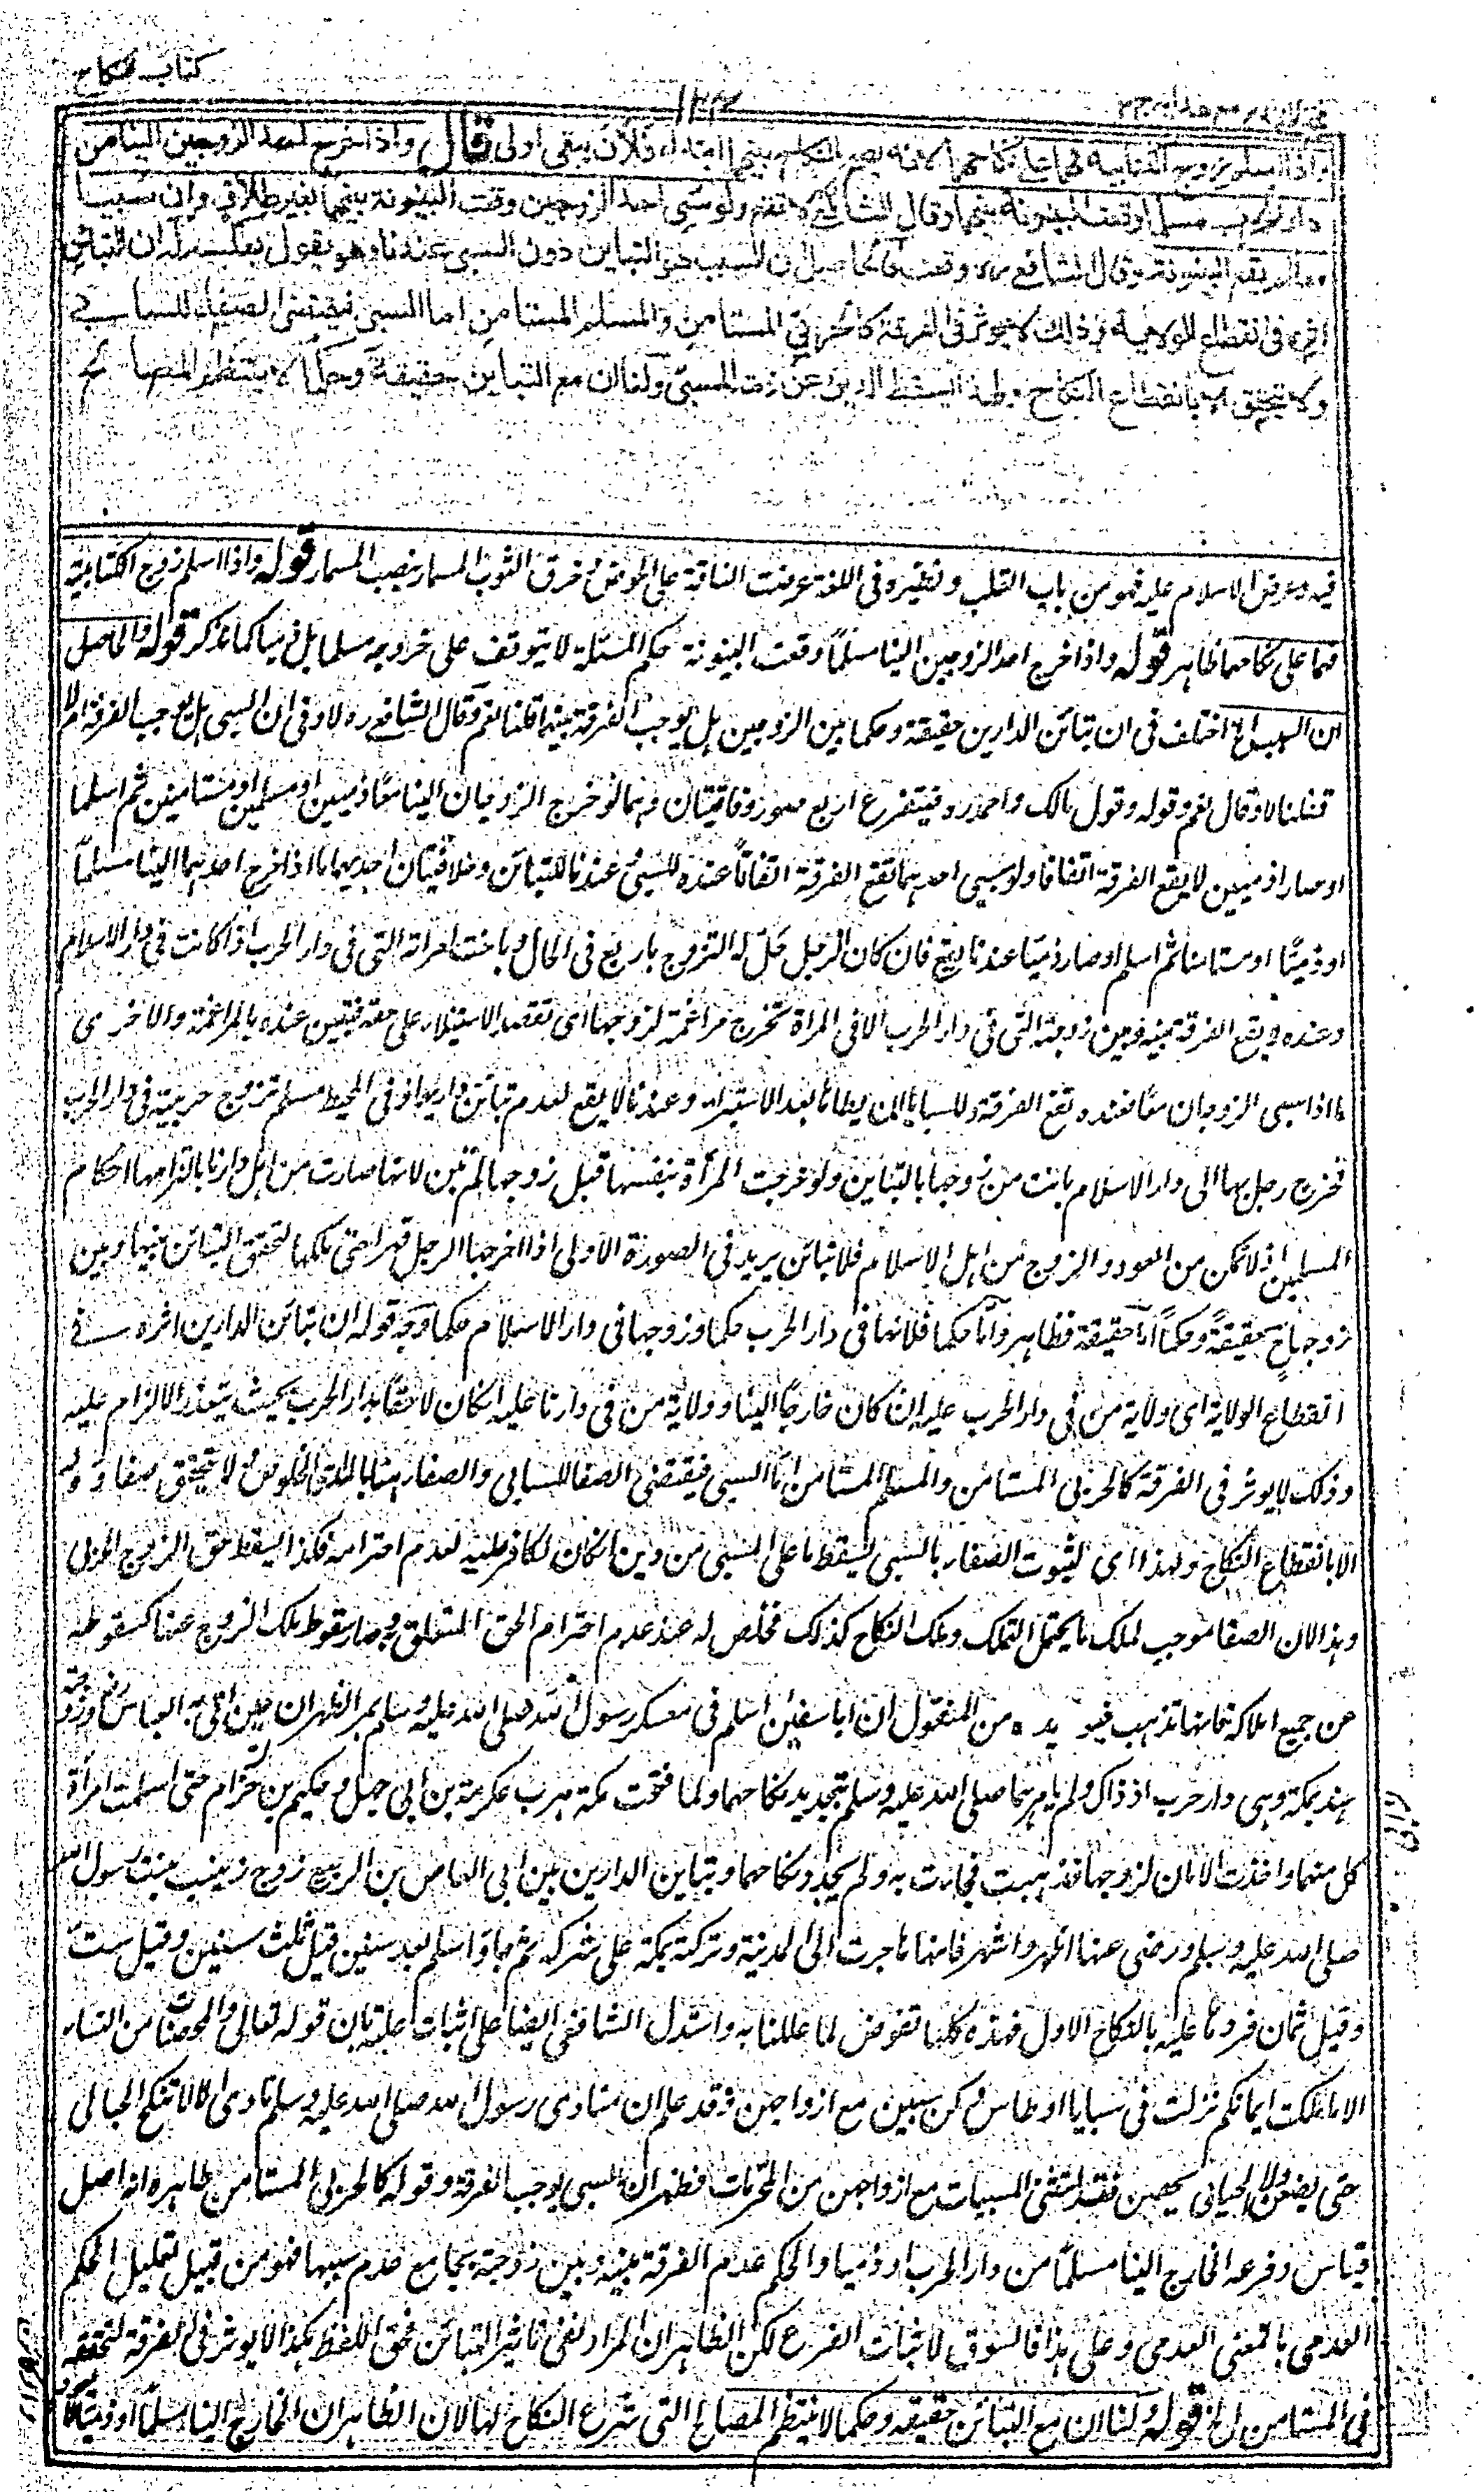 كتاب النكاح
واذا اسلم زوج الكتابية فهما على نكاحهما لانه يصح النكاح بينهما ابتداء فلأن يبقى اولى قال واذا خرج احد الزوجين الينا من
دار الحرب مسلما وقعت البينونة بينهما وقال الشافعي لا تقع ولو سبي احد الزوجين وقعت البينونة بينهما بغير طلاق وان سبيا
معا لم يقع البينونة وقال الشافعي وقعت فالحاصل ان السبب هو التباين دون السبي عندنا وهو يقول بعكسه له ان التباين
اثره في انقطاع الولاية وذلك لا يؤثر في الفرقة كالحربي المستامن والمسلم المستامن اما السبي فيقتضى الصفاء للسابي
ولا يتحقق الا بانقطاع النكاح ولهذا يسقط الدين عن ذمة المسبي ولنا ان مع التباين حقيقة وحكما لا ينتظم المصالح
فيه وعرض الاسلام عليه فهو من باب القلب ونظيره في اللغة عرضت الناقة على الحوض وخرق الثوب المسمار بنصب المسمار قوله واذا اسلم زوج الكتابية
فهما على نكاحهما ظاهر قوله واذا خرج احد الزوجين الينا مسلماً وقعت البينونة حكم المسئلة لا يتوقف على خروجه مسلما بل ذميا كما نذكر قوله والحاصل
ان السبب الخ اختلف في ان تباين الدارين حقيقة وحكما بين الزوجين هل يوجب الفرقة بينهما قلنا نعم وقال الشافعي ره لا وفى ان السبى هل يوجب الفرقة ام لا
فقلنا لا وقال نعم وقوله وقول مالك واحمد ره فيتفرع اربع صور وفاقيتان وهما لو خرج الزوجان الينا معًا ذميين او مسلمين او مستامنين ثم اسلما
او صارا ذميين لا يقع الفرقة اتفاقا ولو سبي احدهما تقع الفرقة اتفاقاً عنده للسبى عندنا للتباين وخلافيتان احدهما ما اذا خرج احدهما الينا مسلماً
او ذميًّا او مستامنا ثم اسلم او صار ذميًا عندنا يقع فان كان الرجل حل له التزوج باربع في الحال وباخت امراته التى فى دار الحرب اذا كانت فى دار الاسلام
وعنده لا يقع الفرقة بينه وبين زوجته التى فى دار الحرب الا فى المراة تخرج مراغمة لزوجها اى تقصد الاستيلاء على حقه فتبين عنده بالمراغمة والاخرى
ما اذا سبى الزوجان معًا فعنده تقع الفرقة وللسابي ان يطاها بعد الاستبراء وعندنا لا يقع لعدم تباين داريهما وفى المحيط مسلم تزوج حربية فى دار الحرب
فخرج رجل بها الى دار الاسلام بانت من زوجها بالتباين ولو خرجت المرأة بنفسها قبل زوجها لم تبن لانها صارت من اهل دارنا بالتزامها احكام
المسلمين اذ لا تمكن من العود والزوج من اهل الاسلام فلا تباين يريد فى الصورة الاولى اذا اخرجها الرجل قهرا حتى ملكها لتحقق التباين بينها وبين
زوجها ح حقيقةً وحكماً اما حقيقة فظاهر واما حكما فلانها فى دار الحرب حكما وزوجها فى دار الاسلام حكما وجه قوله ان تباين الدارين اثره فى
انقطاع الولاية اى ولاية من فى دار الحرب عليه ان كان خارجًا الينا وولاية من فى دارنا عليه ان كان لاحقًا بدار الحرب بحيث يتعذر الالزام عليه
وذلك لا يوثر فى الفرقة كالحربى المستامن والمسلم المستامن اما السبى فيقتضى الصفا للسابى والصفا هنا بالمد الخلوص ولا يتحقق صفاؤه له
الا بانقطاع النكاح ولهذا اى لثبوت الصفاء بالسبى يسقط ما على المسبى من دين ان كان لكافر عليه لعدم احترامه فكذا يسقط حق الزوج الحربى
وهذا لان الصفا موجب لملك ما يحتمل التملك وملك النكاح كذلك فخلص له عند عدم احترام الحق المتعلق وصار سقوط ملك الزوج عنها كسقوطه
عن جميع املاكه فانها تذهب من المنقول ان ابا سفين اسلم فى معسكر رسول الله صلى الله عليه وسلم بمر الظهران حين اتى به العباس رض وزوجته
هند بمكة وهى دار حرب اذ ذاك ولم يامرهما صلى الله عليه وسلم بتجديد نكاحهما ولما فتحت مكة هرب عكرمة بن ابى جهل وحكيم بن حزام حتى اسلمت امرأة
كل منهما واخذت الامان لزوجها فذهبت فجاءت به ولم يجدد نكاحهما وتباين الدارين بين ابى العاص بن الربيع زوج زينب بنت رسول الله
صلى الله عليه وسلم ورضى عنها اظهر واشهر فانها هاجرت الى المدينة وتركته بمكة على شركه ثم جاء واسلم بعد سنين قيل ثلث سنين وقيل ست
وقيل ثمان فردها عليه بالنكاح الاول فهذه كلها نقوض لما عللنا به واستدل الشافعى ايضا على اثبات علته بان قوله تعالى والمحصنات من النساء
الا ما ملكت ايمانكم نزلت فى سبايا اوطاس وكن سبين مع ازواجهن وقد علم ان منادى رسول الله صلى الله عليه وسلم نادى الا لا تنكح الحبالى
حتى يضعن ولا الحيالى حتى يحضن فقد استثنى المسبيات مع ازواجهن من المحرمات فظهر ان السبى يوجب الفرقة وقوله كالحربى المستامن ظاهره انه اصل
قياس وفرعه الخارج الينا مسلمًا من دار الحرب او ذميا والحكم عدم الفرقة بينه وبين زوجته بجامع عدم سببها فهو من قبيل تعليل الحكم
العدمى بالمعنى العدمى وعلى هذا فالسوق لاثبات الفرع لكن الظاهر ان المراد نفى تاثير التباين فحق اللفظ هكذا لا يوثر فى الفرقة لتحققه
فى المستامن الخ قوله ولنا ان مع التباين حقيقة وحكما لا ينتظم المصالح التى شرع النكاح لها لان الظاهر ان الخارج الينا مسلمًا او ذميًّا لا